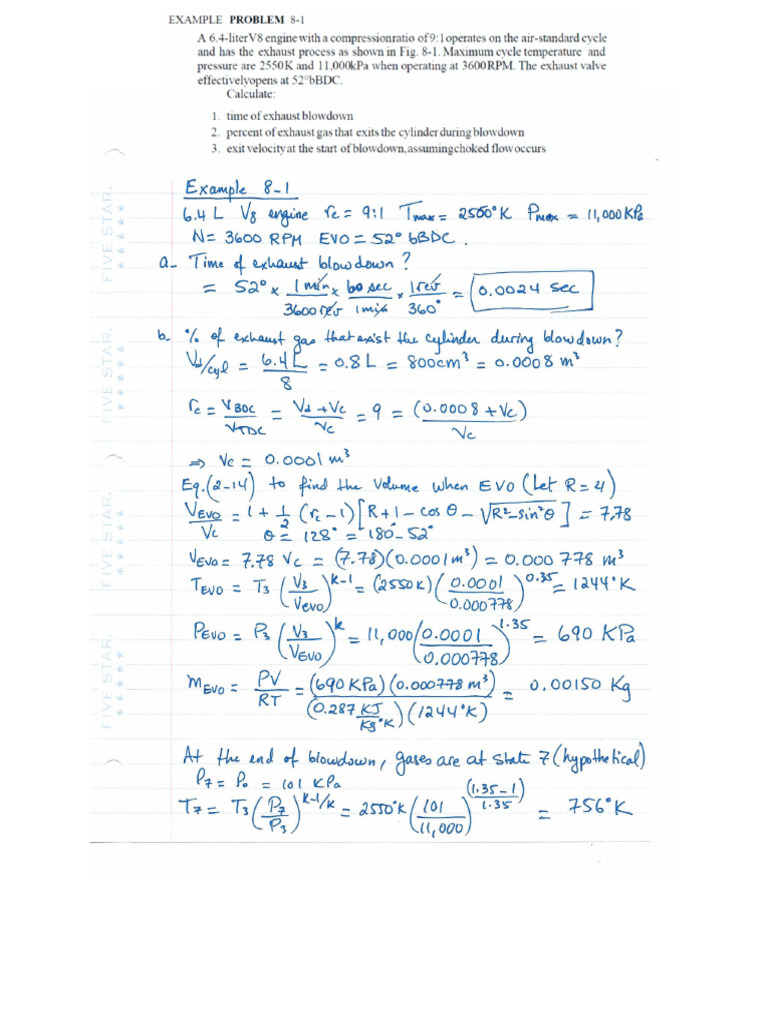 EXAMPLE PROBLEM 8-1
A 6.4-literV8 engine with a compressionratio of 9:1 operates on the air-standard cycle
and has the exhaust process as shown in Fig. 8-1. Maximum cycle temperature and
pressure are 2550K and 11,000kPa when operating at 3600RPM. The exhaust valve
effectivelyopens at 52°bBDC.
Calculate:
1. time of exhaust blowdown
2. percent of exhaust gas that exits the cylinder during blowdown
3. exit velocity at the start of blowdown, assuming choked flow occurs
Example 8-1
6.4 L V8 engine rc = 9:1 Tmax = 2550°K Pmax = 11,000 KPa
N = 3600 RPM EVO = 52° bBDC.
a- Time of exhaust blowdown?
= 52° x 1 min/3600 rev x 60 sec/1 min x 1 rev/360° = 0.0024 sec
b. % of exhaust gas that exist the cylinder during blowdown?
Vd/cyl = 6.4 L/8 = 0.8 L = 800cm³ = 0.0008 m³
rc = VBDC/VTDC = Vd + Vc/Vc = 9 = (0.0008 + Vc)/Vc
⇒ Vc = 0.0001 m³
Eq.(2-14) to find the Volume when EVO (Let R = 4)
VEVO/Vc = 1 + 1/2 (rc - 1) [R + 1 - cos θ - √R² - sin²θ] = 7.78
θ = 128° = 180 - 52°
VEVO = 7.78 Vc = (7.78)(0.0001 m³) = 0.000 778 m³
TEVO = T3 (V3/VEVO)^k-1 = (2550K) (0.0001/0.000778)^0.35 = 1244°K
PEVO = P3 (V3/VEVO)^k = 11,000 (0.0001/0.000778)^1.35 = 690 KPa
mEVO = PV/RT = (690 KPa)(0.000778 m³)/(0.287 KJ/Kg°K)(1244°K) = 0.00150 Kg
At the end of blowdown, gases are at state 7 (hypothetical)
P7 = Po = 101 KPa
T7 = T3 (P7/P3)^k-1/k = 2550°K (101/11,000)^(1.35 - 1)/1.35 = 756°K
FIVE STAR.
FIVE STAR.
FIVE STAR.
FIVE STAR.